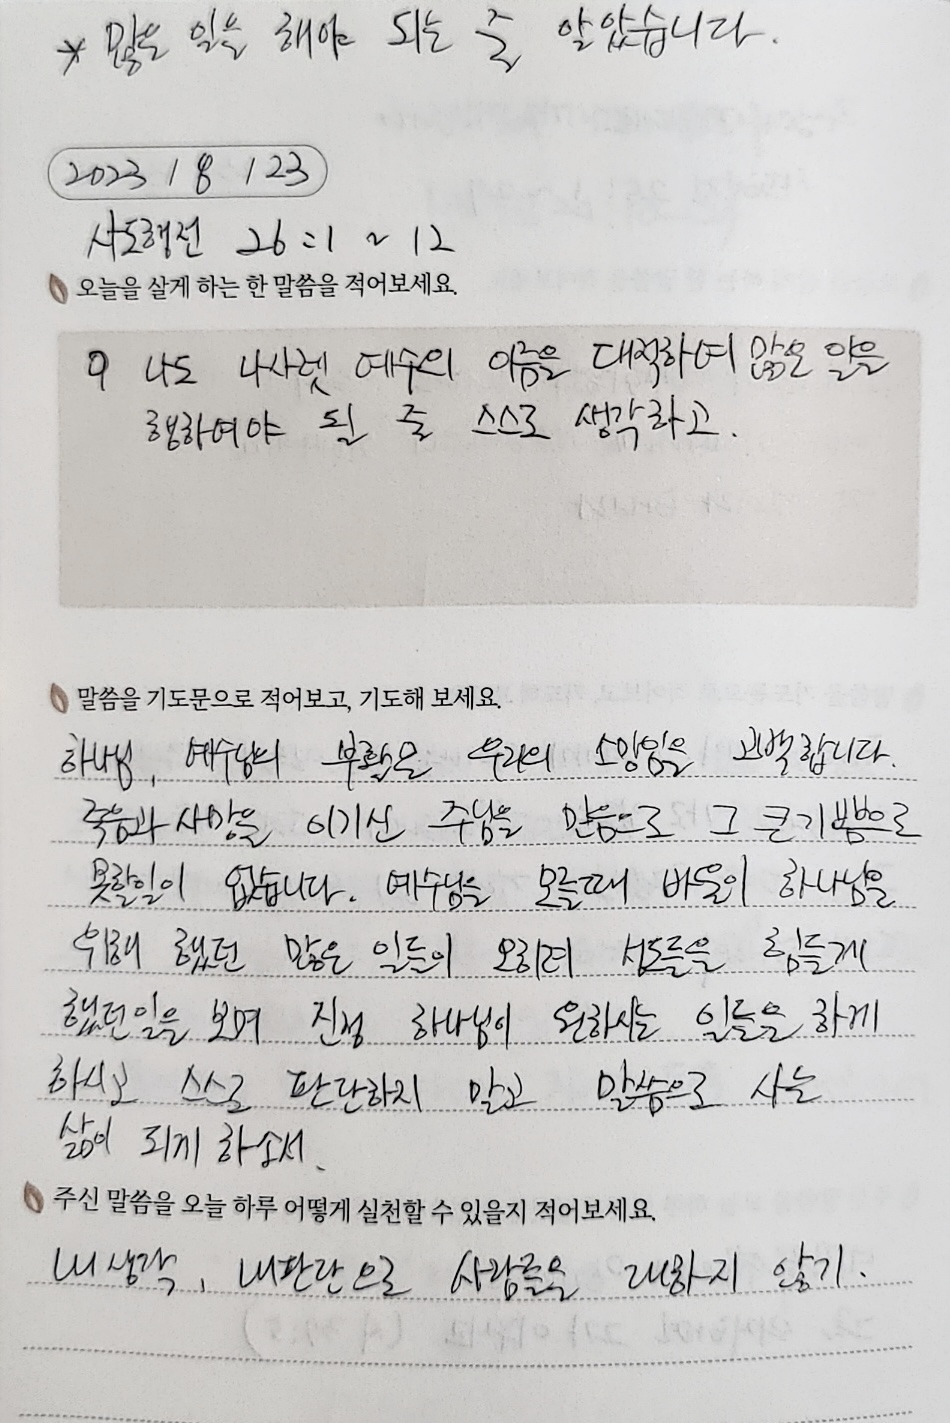 * 많은 일을 해야 되는 줄 알았습니다.
2023 / 8 / 23
사도행전 26:1 ~ 12
오늘을 살게 하는 한 말씀을 적어보세요.
9 나도 나사렛 예수의 이름을 대적하여 많은 일을
행하여야 될 줄 스스로 생각하고.
말씀을 기도문으로 적어보고, 기도해 보세요.
하나님, 예수님의 부활은 우리의 소망임을 고백합니다.
죽음과 사망을 이기신 주님을 믿음으로 그 큰 기쁨으로
못할일이 없습니다. 예수님을 모를때 바울이 하나님을
위해 했던 많은 일들이 오히려 성도들을 힘들게
했던일을 보며 진정 하나님이 원하시는 일들을 하게
하시고 스스로 판단하지 말고 말씀으로 사는
삶이 되게 하소서.
주신 말씀을 오늘 하루 어떻게 실천할 수 있을지 적어보세요.
내 생각, 내판단으로 사람들을 대하지 않기.